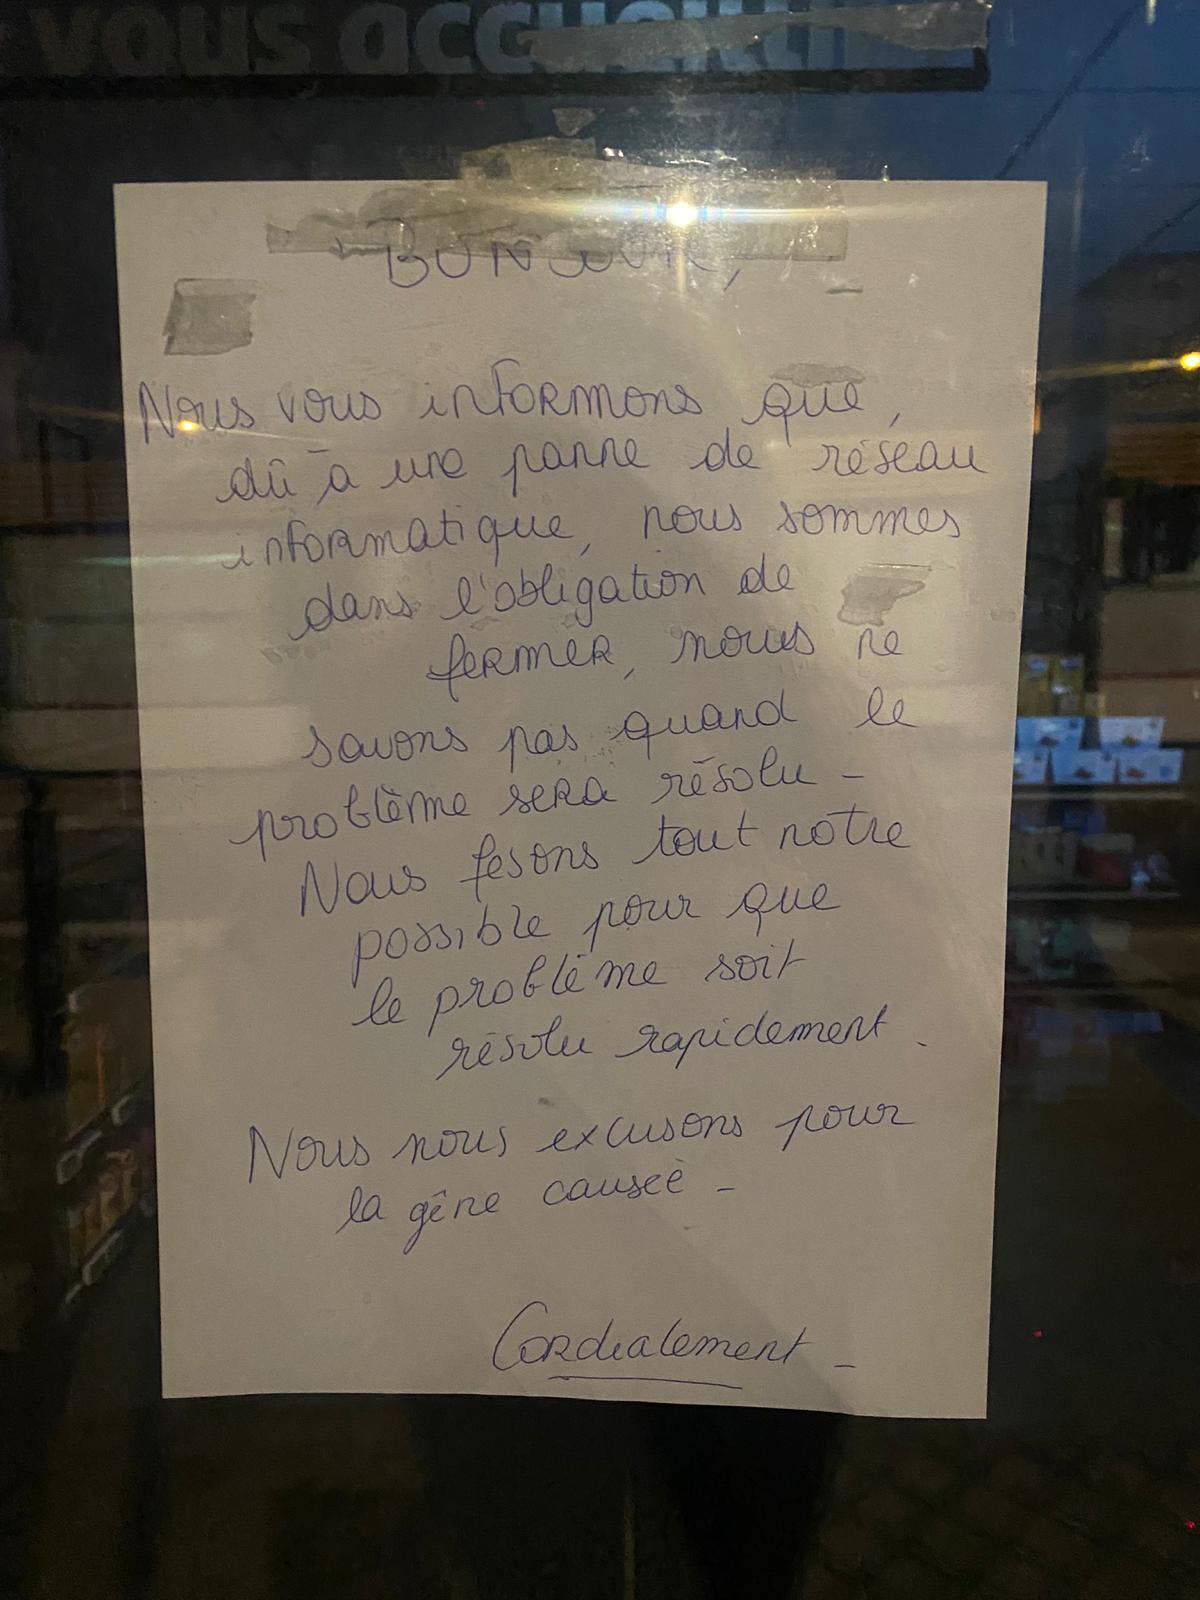 vous accueill
BONJOUR,
Nous vous informons que,
dû à une panne de réseau
informatique, nous sommes
dans l'obligation de
fermer, nous ne
savons pas quand le
problème sera résolu -
Nous fesons tout notre
possible pour que
le problème soit
résolu rapidement.
Nous nous excusons pour
la gêne causée -
Cordialement -